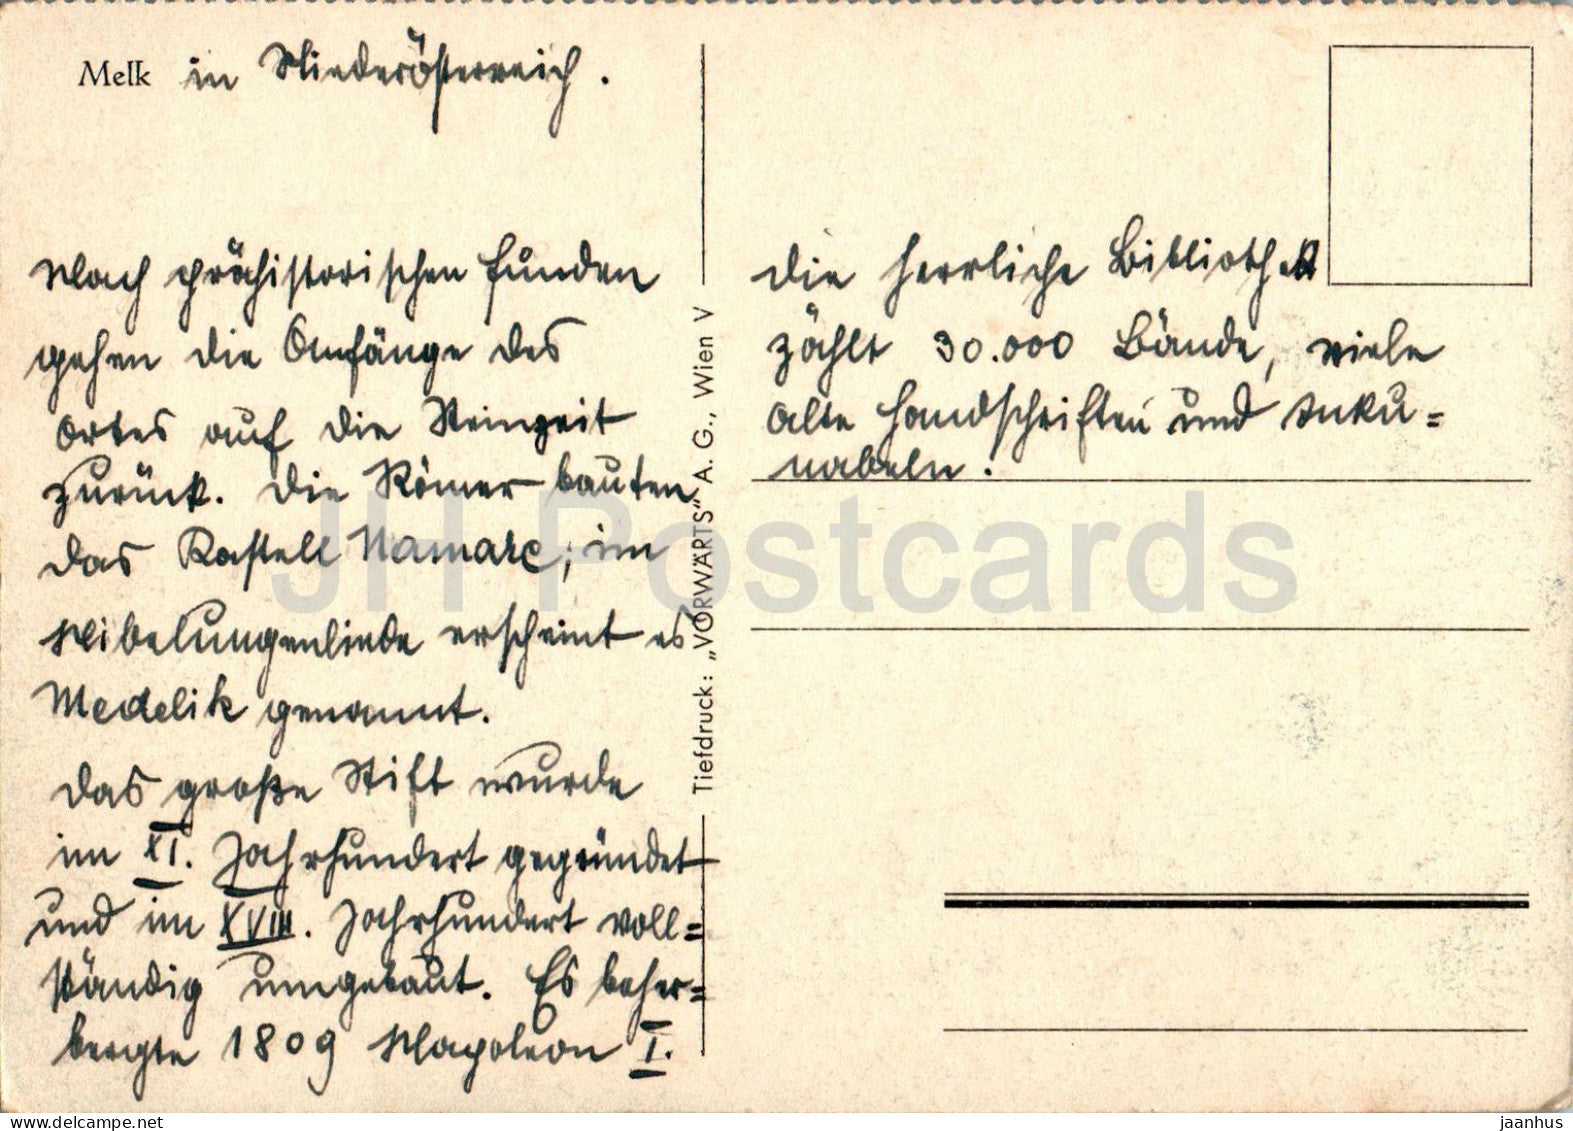 Melk in Niederösterreich.
Nach prähistorischen Funden
gehen die Anfänge des
Ortes auf die Steinzeit
zurück. Die Römer bauten
das Kastell Namare; im
Nibelungenliede erscheint es
Medelik genannt.
Das große Stift wurde
im XI. Jahrhundert gegründet
und im XVIII. Jahrhundert voll=
ständig umgebaut. Es beher=
bergte 1809 Napoleon I.
Tiefdruck: „VORWÄRTS" A. G., Wien V
Die herrliche Bibliothek
zählt 30.000 Bände, viele
alte Handschriften und Inku=
nabeln.
JH Postcards
delcampe.net
jaanhus